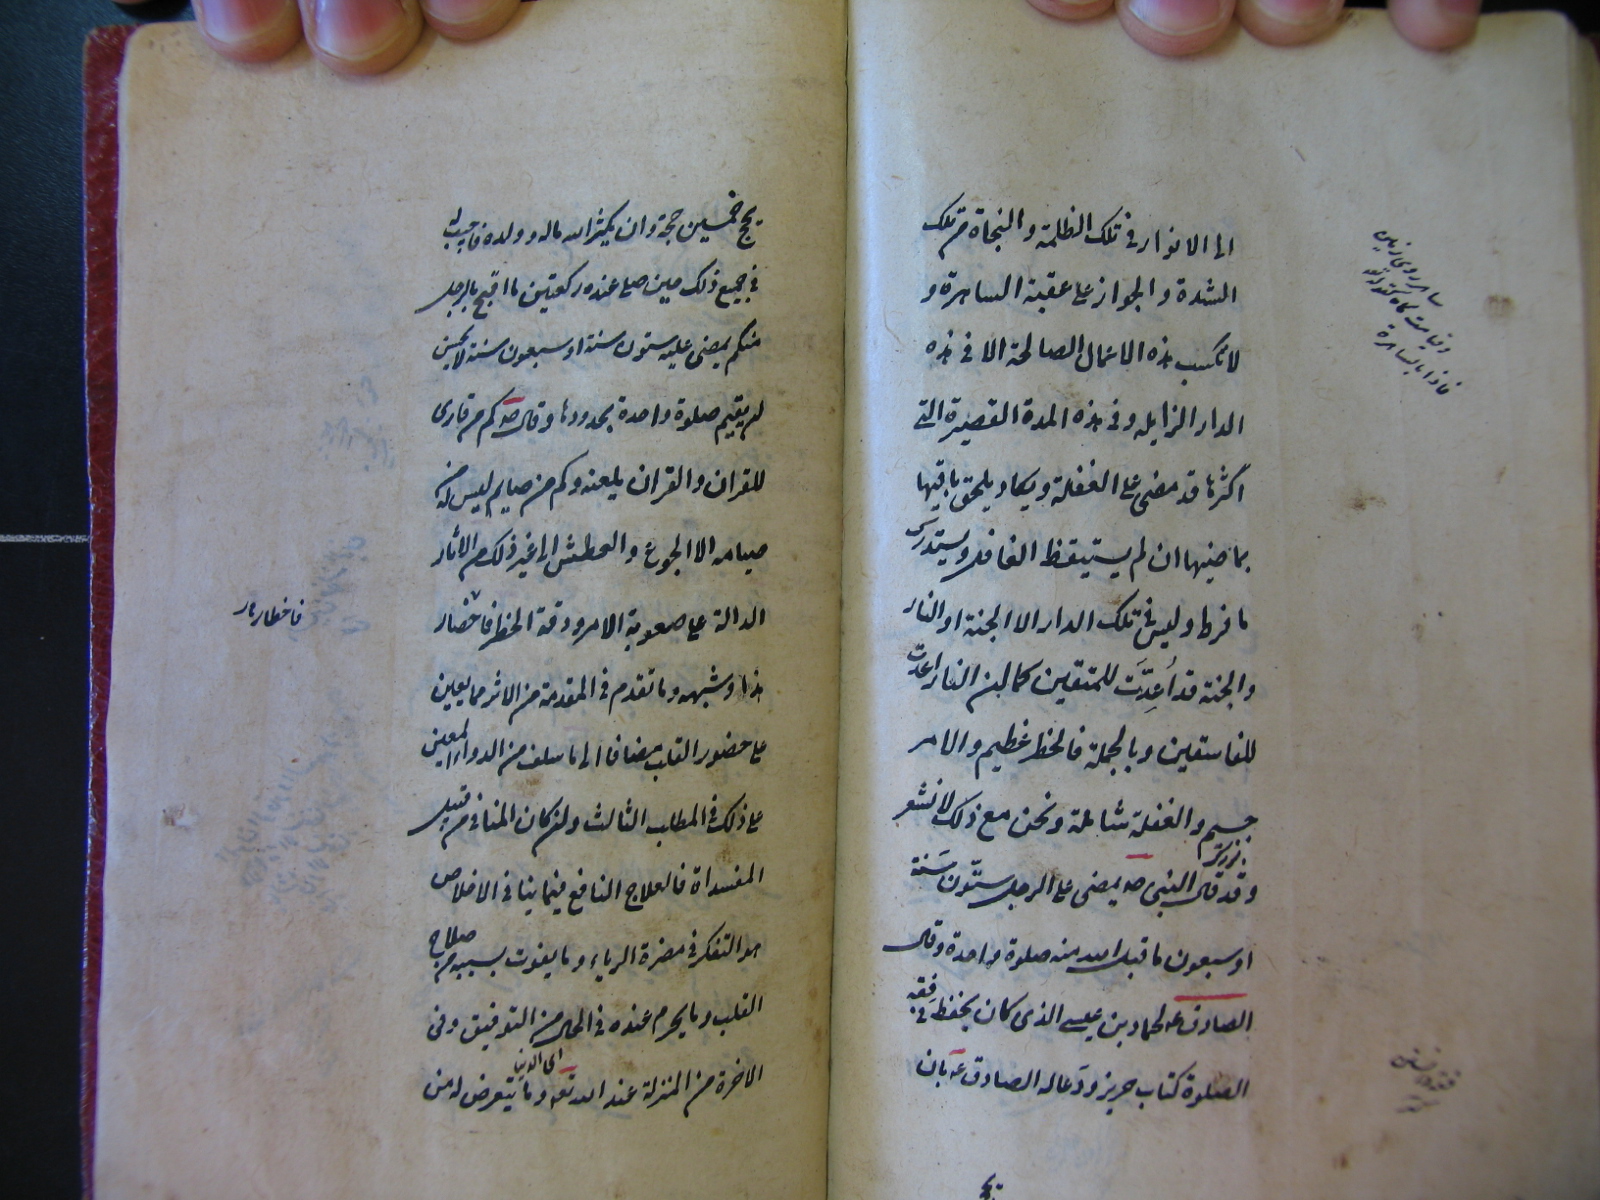 الى الانوار فى تلك الظلمة و النجاة من تلك
الشدة و الجواز على عقبة الساهرة و
لا تكسب هذه الاعمال الصالحة الا فى هذه
الدار الزايله و فى هذه المدة القصيرة التى
اكثرها قد مضى على الغفلة و يكاد يلحق باقيها
بماضيها ان لم يستيقظ الغافل و يستدرك
ما فرط و ليس فى تلك الدار الا الجنة او النار
و الجنة قد اُعِدَّت للمتقين كما ان النار اعدت
للفاسقين و بالجملة فالخطر عظيم و الامر
جسيم و الغفلة شاملة و نحن مع ذلك لا نشعر
بزرك
و قد قال النبى صه يمضى على الرجل ستّون سَنة
او سبعون ما قبل الله منه صلوة واحدة و قال
الصادق عه لحماد بن عيسى الذى كان يحفظ فى فقه
الصلوة كتاب حريز و دَعا له الصادق عه بان
فاذا هم بالساهرة
يحج خمسين حجة و ان يكثر الله ماله و ولده فاجيب له
فى جميع ذلك حين صلى عنده ركعتين ما اقبح بالرجل
منكم يمضى عليه ستون سنة او سبعون سنة لا يحسن
ان يقيم صلوة واحدة بحدودها و قال صه كم من قارى
للقران و القران يلعنه و كم من صايم ليس له من
صيامه الا الجوع و العطش الى غير ذلك من الاثار
الدالة على صعوبة الامر و دقة الخطر فاخطار
هذا و شبهه و ما تقدم فى المقدمة من الاثر مما يعين
على حضور القلب مضافا الى ما سلف من الدواء المعين
على ذلك فى المطلب الثالث و ان كان المنافى من قبيل
المفسداة فالعلاج النافع فيما ينافى الاخلاص
هو التفكر فى مضرة الرياء و ما يفوت بسببه من صلاح
القلب و ما يحرم عنده فى الحال من التوفيق و فى
الاخرة من المنزلة عند الله تعه و ما يتعرض له من
فاخطار